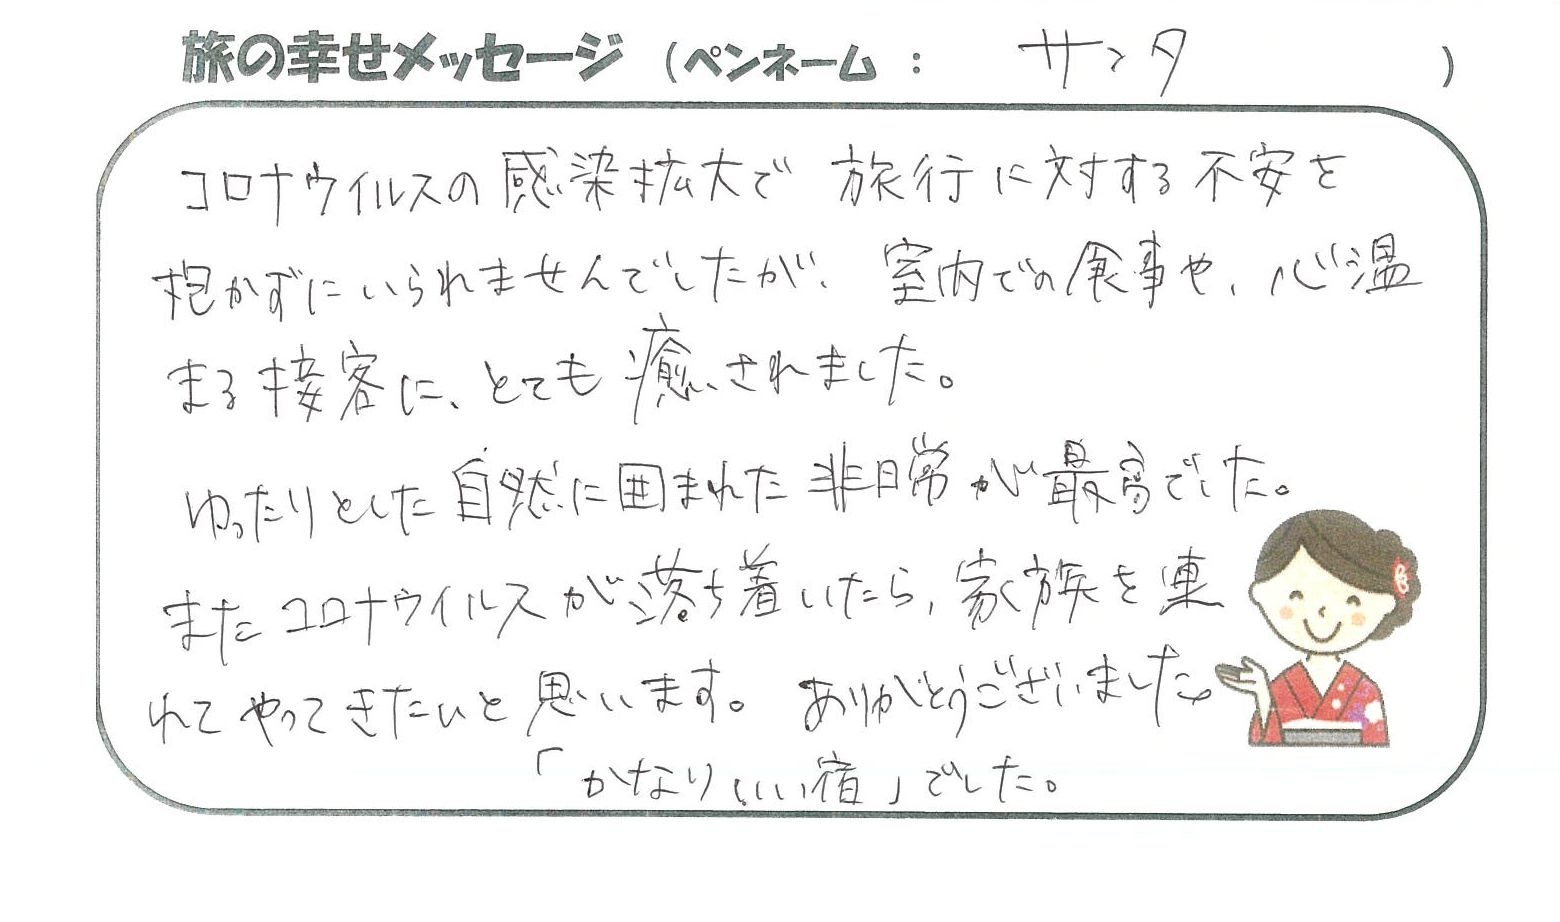 旅の幸せメッセージ (ペンネーム : サンタ )
コロナウイルスの感染拡大で 旅行に対する不安を
抱かずにいられませんでしたが、室内での食事や、心温
まる接客に、とても癒されました。
ゆったりとした自然に囲まれた非日常が最高でした。
またコロナウイルスが落ち着いたら、家族を連
れてやってきたいと思います。ありがとうございました。
「かなりいい宿」でした。